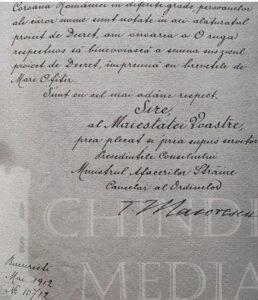 Coroana României în diferite grade, persoanelor
ale căror nume sunt notate în aci alăturatul
proiect de Decret, am onoarea a O ruga
respectuos să binevoiască a semna suszisul
proiect de Decret, împreună cu brevetele de
Mare Ofiter.
Sunt cu cel mai adânc respect,
Sire,
al Maiestatei Voastre,
prea plecat și prea supus servitor
Președintele Consiliului
Ministrul Afacerilor Străine
Cancelar al Ordinelor
T. Maiorescu
București
Mai 1912
№ 107/12
CHINDIA
MEDIA